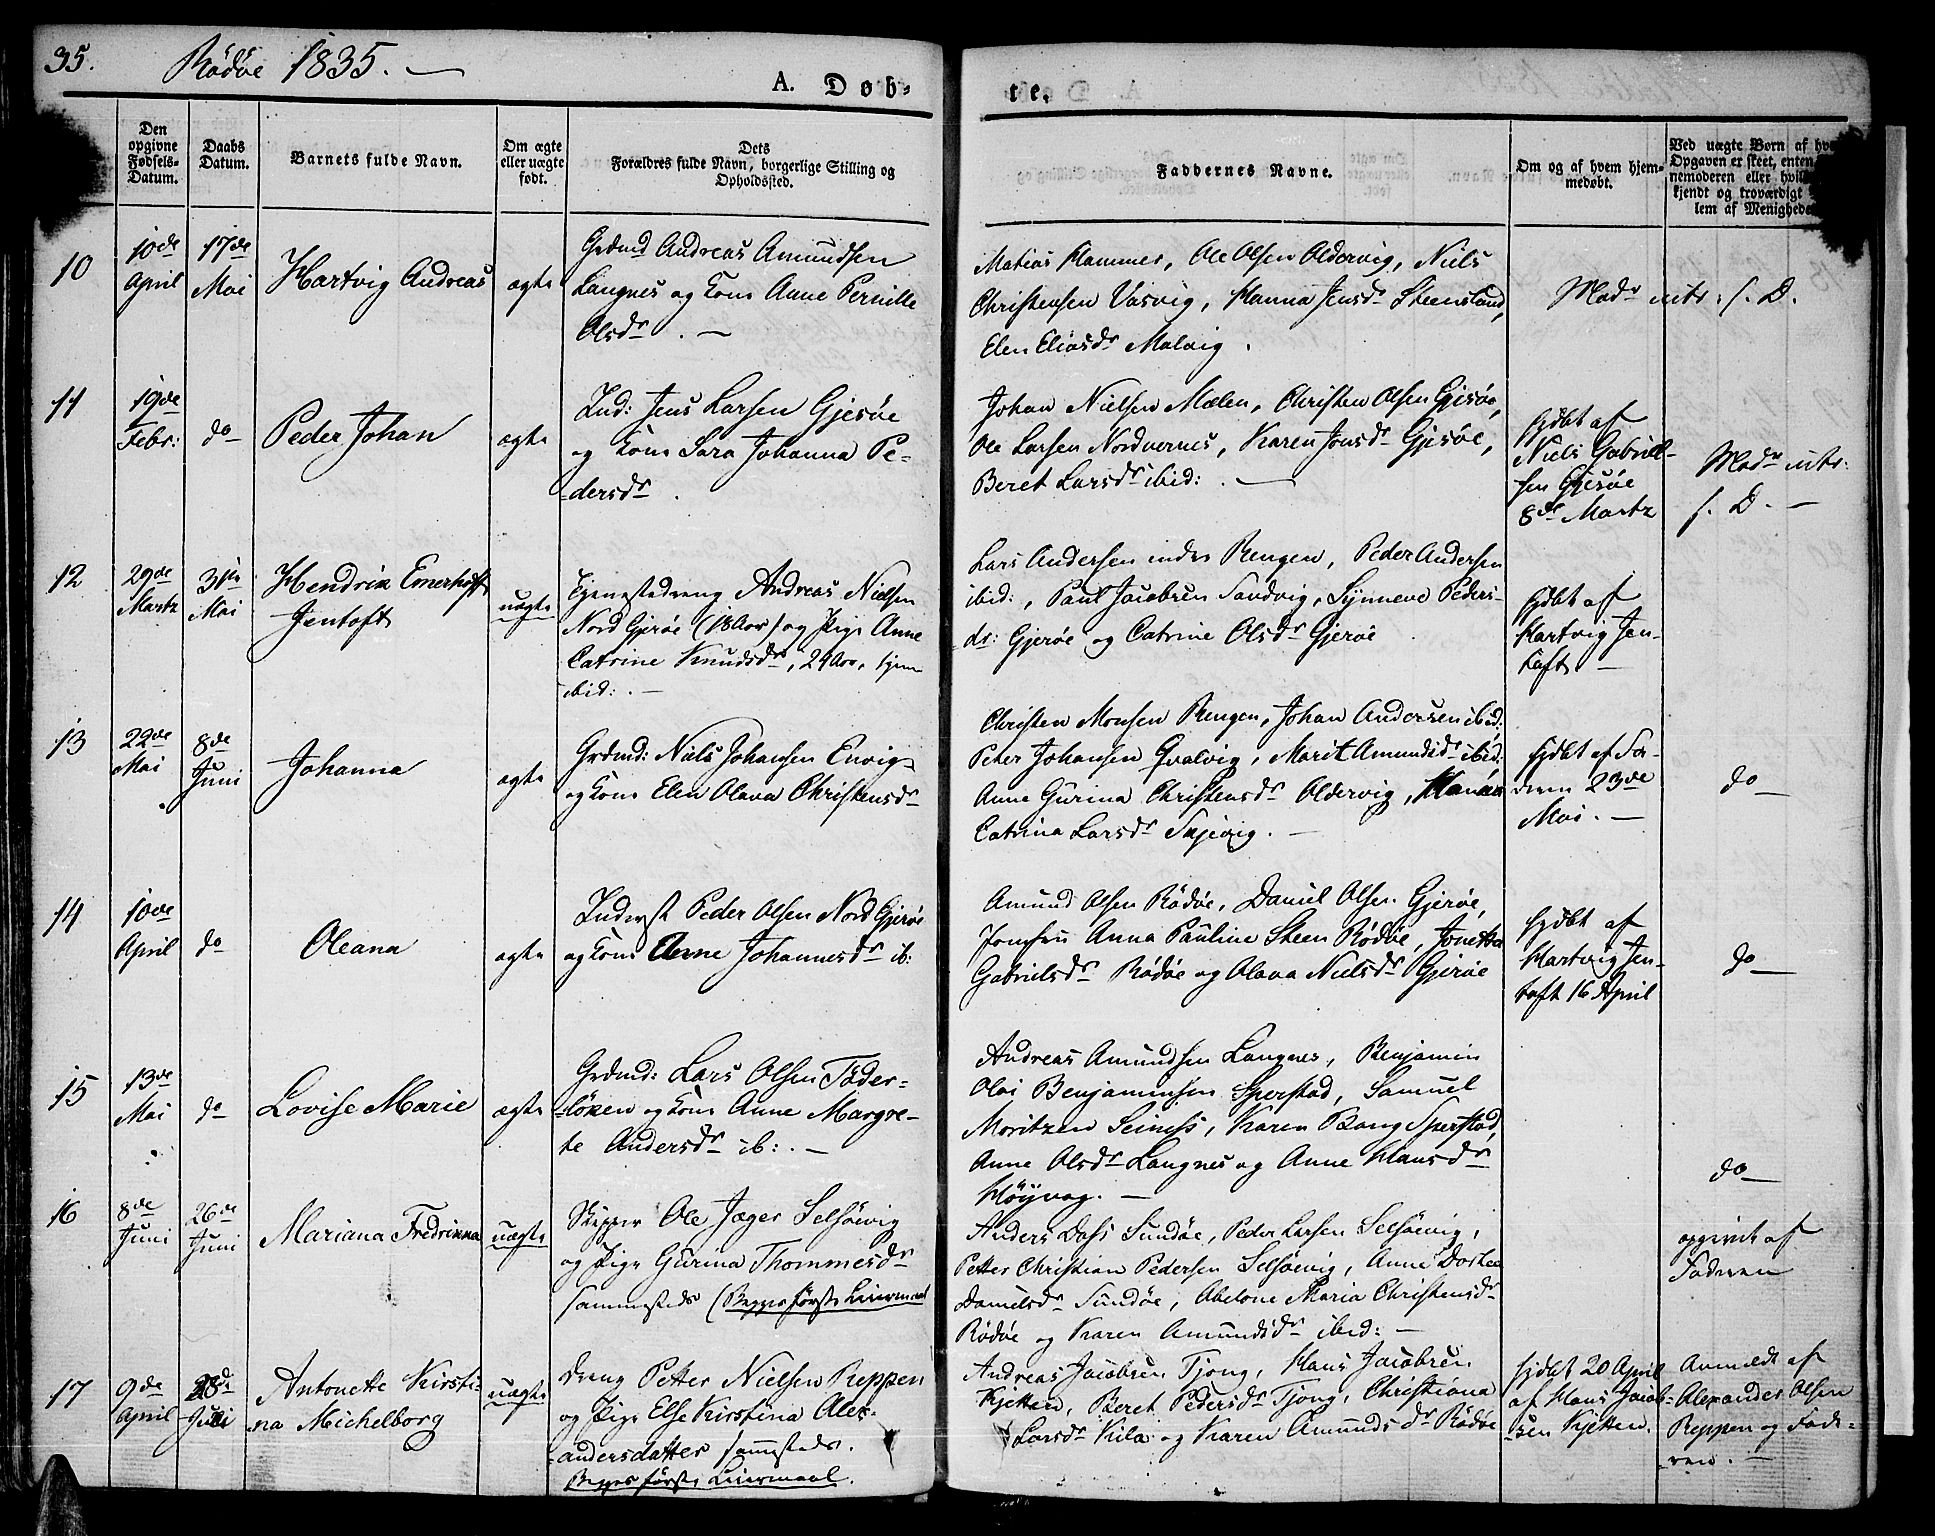 35. Rödöe 1835. —
A. Døb-
te.
Den opgivne Fødsels-Datum.
Daabs Datum.
Barnets fulde Navn.
Om ægte eller uægte født.
Dets
Forældres fulde Navn, borgerlige Stilling og
Opholdssted.
Faddernes Navne.
Om og af hvem hjem-
medøbt.
Ved uægte Børn af
Opgaven er skeet, enten
nemoderen eller
kjendt og troværdigt
lem af
10
10de April
17de Mai
Hartvig Andreas
ægte
Grdmd Andreas Amundsen
Langnes og Kone Anne Pernille
Olsdr. —
Matias Hammer, Ole Olsen Oldervig, Niels
Christensen Vasvig, Hanna Jensdr Steensland,
Elen Eliasdr Malvig.
Modr intr: f. D.
11
19de Febr:
do
Peder Johan
ægte
Ind: Jens Larsen Gjesöe
og Kone Sara Johanna Pe-
-dersdr.
Johan Nielsen Mælen, Christen Olsen Gjesöe,
Ole Larsen Nordvernes, Karen Jensdr Gjesöe,
Beret Larsdr ibid: . —
hjdbt af
Niels Gabriel-
sen Gjesöe
8de Martz
Modr intr:
f. D. —
12
29de Martz
31te Mai
Hendrik Emerhoft
Jentoft
uægte
Tjenestedreng Andreas Nielsen
Nord Gjeröe (18 Aar) og Pige Anne
Catrine Knudsdr, 29 Aar, tjen
ibid: . —
Lars Andersen indre Rengen, Peder Andersen
ibid:, Paul Jacobsen Sandvig, Synneve Peders-
dr: Gjeröe og Catrine Olsdr Gjeröe
hjdbt af
Hartvig Jen-
toft —
13
22de Mai
8de Juni
Johanna
ægte
Grdmd: Niels Johansen Envig
og Kone Elen Olava Christensdr
Christen Monsen Rengen, Johan Andersen ibid:
Peter Johansen Qvalvig, Marit Amundsdr ibid:
Anne Gurina Christensdr Oldervig, Hanna
Catrina Larsdr Skjevig. —
hjdbt af Fa-
deren 23de
Mai. —
do —
14
10de April
do
Oleana
ægte
Inderst Peder Olsen Nord Gjeröe
og Kone Anne Johannesdr ib:
Amund Olsen Rödöe, Daniel Olsen Gjeröe,
Jomfru Anna Pauline Steen Rödöe, Jonetta
Gabrielsdr Rödöe og Olava Nielsdr Gjeröe
hjdbt af
Hartvig Jen-
toft 16 April
do —
15
13de Mai
do
Lovise Marie
ægte
Grdmd: Lars Olsen Fader-
-löken og Kone Anne Margre-
te Andersdr ib: . —
Andreas Amundsen Langnes, Benjamin
Olai Benjaminsen Sperstad, Samuel
Moritzen Seines, Karen Bang Sperstad,
Anne Olsdr Langnes og Anne Hansdr
Höyvag. —
do —
16
8de Juni
26de Juni
Mariana Fredrikka
uægte
Skipper Ole Jæger Selsöevig
og Pige Gurina Thommesdr
sammesteds (Begges förste Leiermaal
Anders Dass Sundöe, Peder Larsen Selsöevig,
Petter Christian Pedersen Selsöevig, Anne Dorthea
Danielsdr Sundöe, Abelone Maria Christensdr
Rödöe og Karen Amundsdr ibid: —
opgivet af
Faderen
17
9de April
28de Juni
Antonette Kirsti-
na Michelborg
uægte
Dreng Petter Nielsen Reppen
og Pige Else Kirstina Alex-
andersdatter sammesteds.
Begges förste Leiermaal.
Andreas Jacobsen Tjong, Hans Jacobsen
Kjetten, Beret Pedersdr Tjong, Christiana
Larsdr Kila og Karen Amundsdr Rödöe
hjdbt 20 April
af Hans Jacob-
sen Kjetten.
Anmeldt af
Alexander Olsen
Reppen og Fade-
ren. —